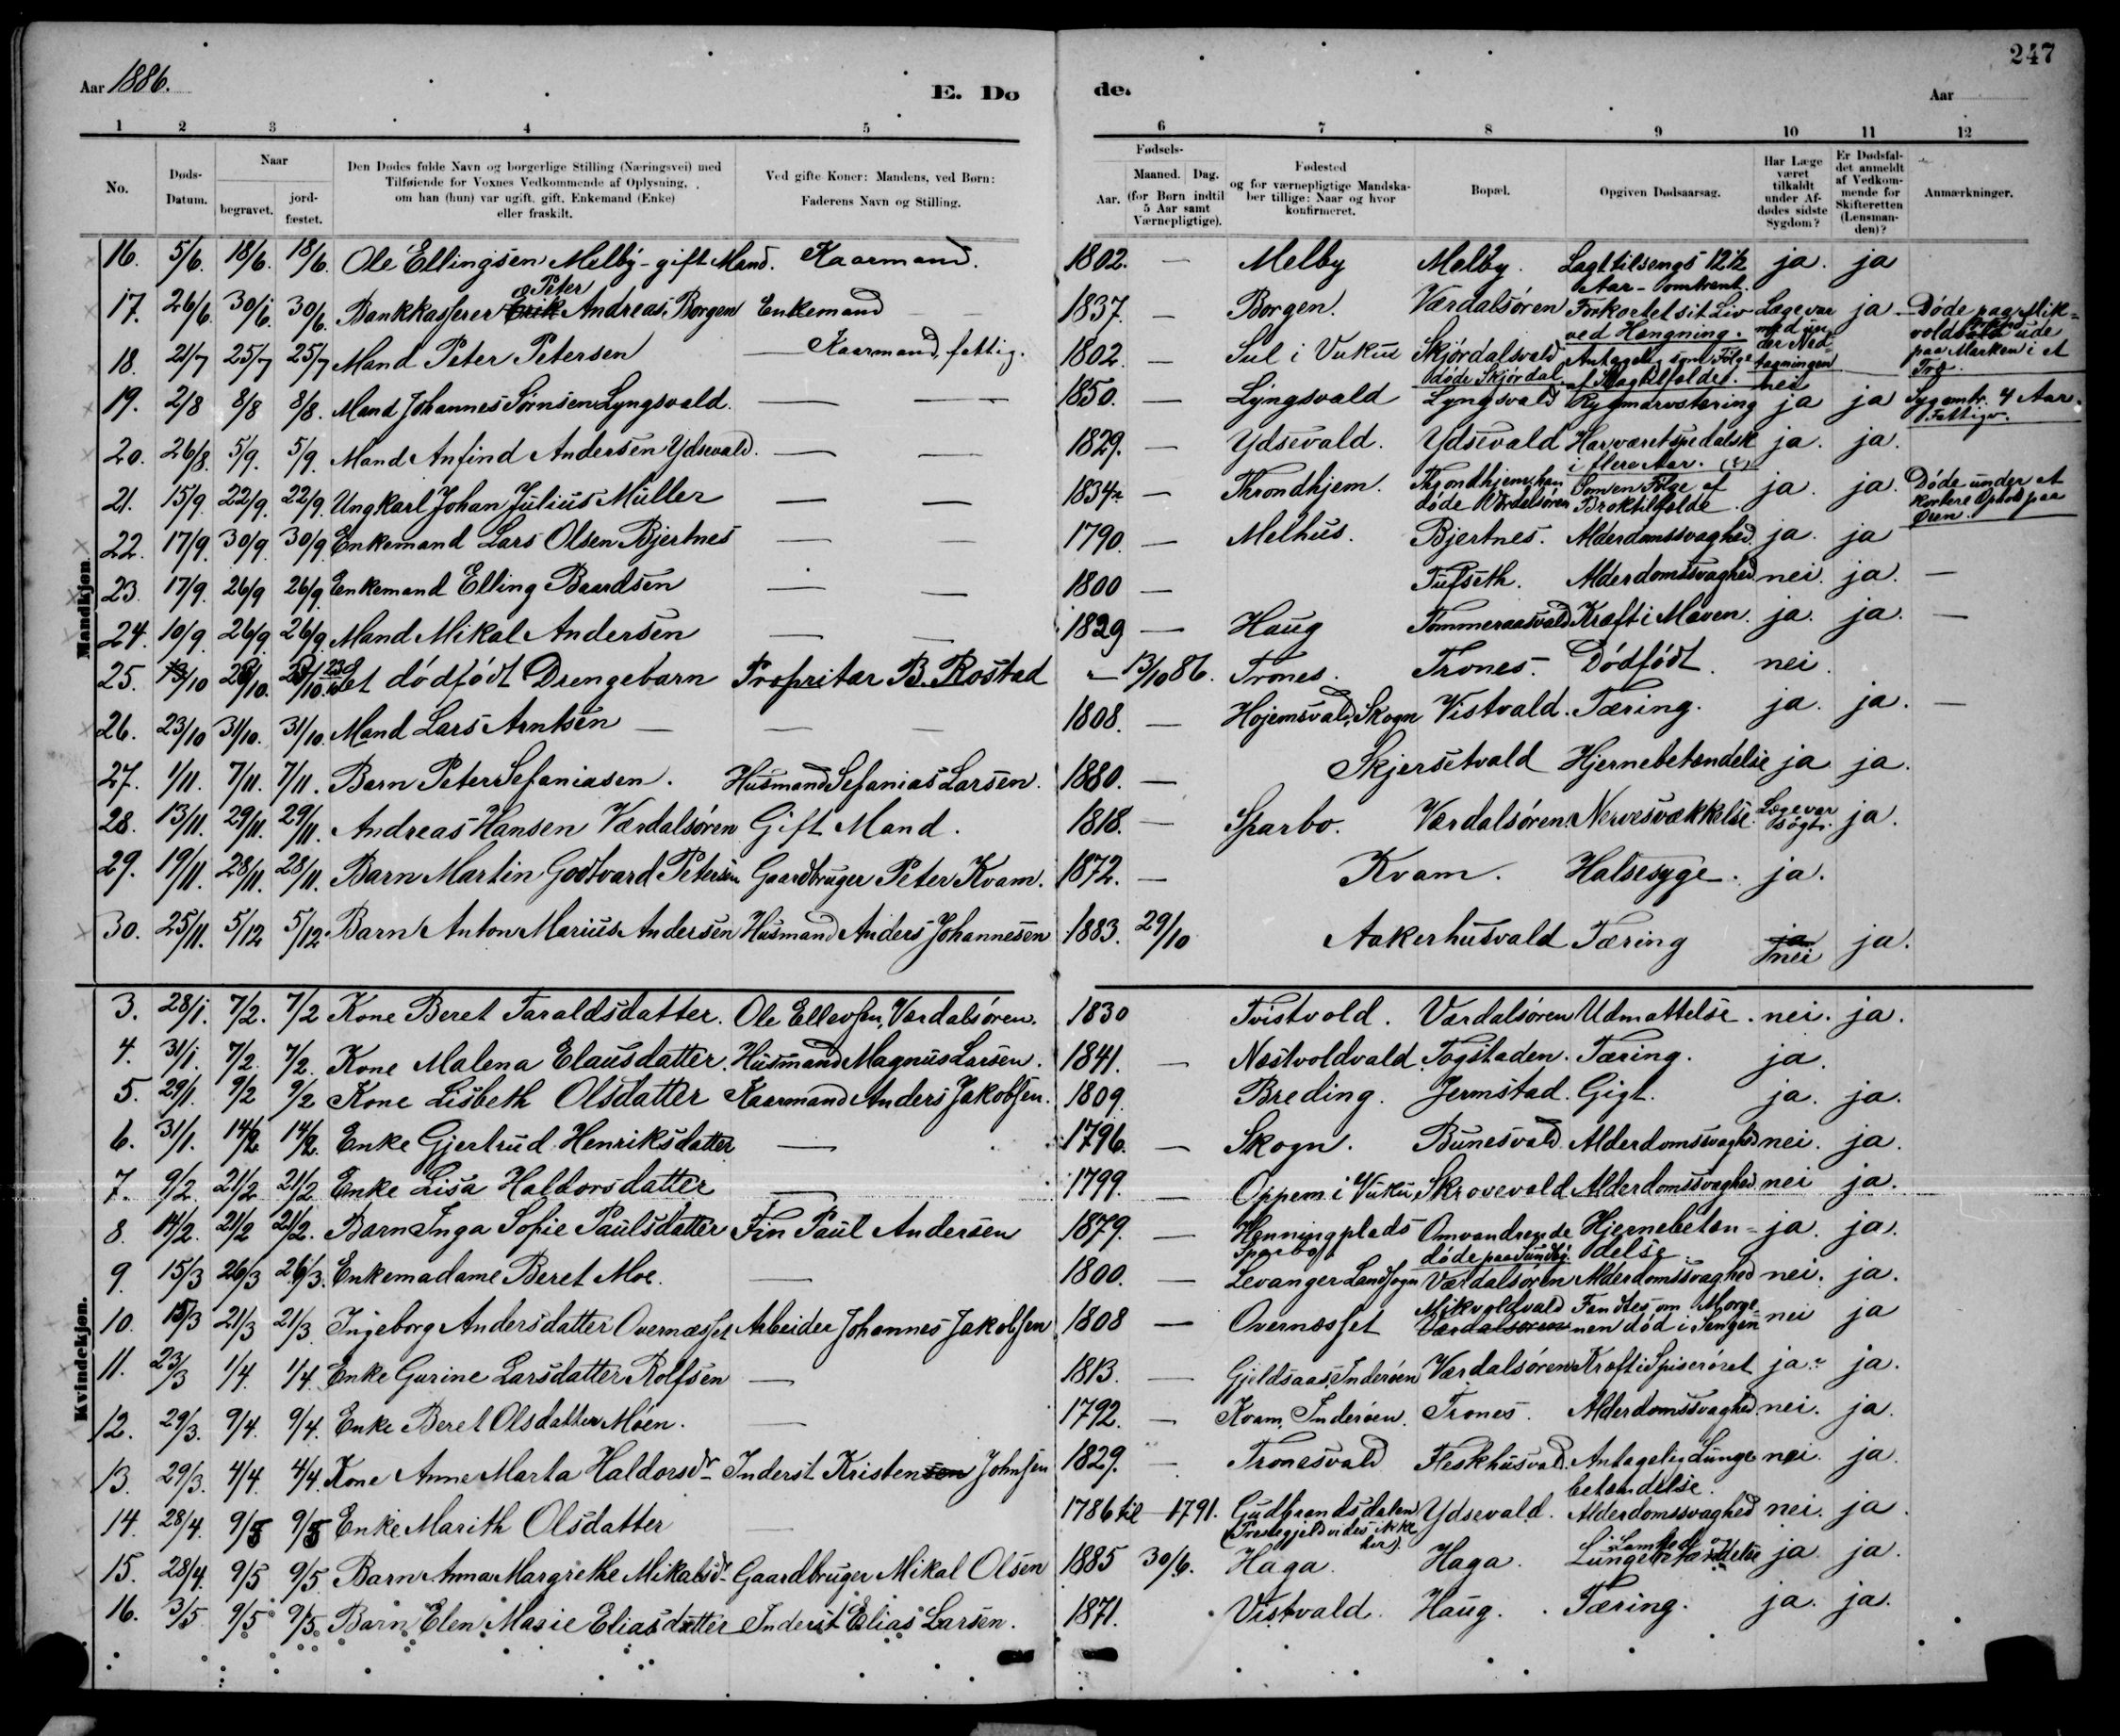 247
Aar 1886.
E. Døde.
Aar
1 2 3 4 5 6 7 8 9 10 11 12
No.
Døds-Datum.
Naar
begravet.
jord-fæstet.
Den Dødes fulde Navn og borgerlige Stilling (Næringsvei) med
Tilføiende for Voxnes Vedkommende af Oplysning,
om han (hun) var ugift, gift, Enkemand (Enke)
eller fraskilt.
Ved gifte Koner: Mandens, ved Børn:
Faderens Navn og Stilling.
Fødsels-
Aar.
Maaned.
Dag.
(for Børn indtil
5 Aar samt
Værnepligtige).
Fødested
og for værnepligtige Mandska-
ber tillige: Naar og hvor
konfirmeret.
Bopæl.
Opgiven Dødsaarsag.
Har Læge
været
tilkaldt
under Af-
dødes sidste
Sygdom?
Er Dødsfal-
det anmeldt
af Vedkom-
mende for
Skifteretten
(Lensman-
den)?
Anmærkninger.
Mandkjøn.
16. 5/6. 18/6. 18/6. Ole Ellingsen Melby - gift Mand. Kaarmand. 1802. — Melby Melby. Lagt tilsengs 12 1/2 Aar - omtrent. ja. ja
17. 26/6. 30/6. 30/6. Bankkasserer Erik Peter Andreas Borgen Enkemand 1837. — Borgen. Værdalsøren Forkortet sit Liv ved Hængning. Læge var med under Nedtagningen ja. Døde paa Mikvoldvald ude paa Marken i et Træ.
18. 21/7 25/7 25/7 Mand Peter Petersen — Kaarmand, fattig. 1802. — Sul i Vuku Skjørdalsvald døde Skjørdal. Antagelig som Følge af Slagtilfældet. nei
19. 2/8 8/8 8/8. Mand Johannes Sørnsen Lyngsvald. — — 1850. — Lyngsvald Lyngsvald Rygmarvstæring ja ja Syg omtr. 4 Aar. Fattigv.
20. 26/8. 5/9. 5/9. Mand Anfind Andersen Ydsevald. — — 1829. — Ydsevald. Ydsevald Har været spedalsk i flere Aar. ja. ja.
21. 15/9. 22/9. 22/9. Ungkarl Johan Julius Müller — — 1834 — Throndhjem. Throndhjem, han døde Værdalsøren Som en Følge af Broktilfælde. ja. ja. Døde under et kortere Ophold paa Øren.
22. 17/9. 30/9. 30/9 Enkemand Lars Olsen Bjertnes — — 1790. — Melhus. Bjertnes. Alderdomssvaghed. ja. ja
23. 17/9. 26/9 26/9. Enkemand Elling Baardsen — — 1800 — Tufseth. Alderdomssvaghed nei. ja. —
24. 10/9. 26/9. 26/9. Mand Mikal Andersen — — 1829 — Haug Tommeraasvald Kræft i Maven. ja. ja. —
25. 13/10 23/10. 23/10. Et dødfødt Drengebarn Proprietær B. Rostad — 13/10 86. Trones. Trones. Dødfødt. nei.
26. 23/10 31/10. 31/10. Mand Lars Arntsen — — — 1808. — Hojemsvald, Skogn Vistvald. Tæring. ja. ja. —
27. 1/11. 7/11. 7/11. Barn Peter Sefaniasen. Husmand Sefanias Larsen. 1880. — Skjersetvald Hjernebetændelse ja ja.
28. 13/11. 29/11. 29/11. Andreas Hansen Værdalsøren Gift Mand. 1818. — Sparbo. Værdalsøren. Nervesvækkelse. Læge var søgt. ja.
29. 19/11. 28/11. 28/11. Barn Martin Godtvard Petersen Gaardbruger Peter Kvam. 1872. — Kvam. Halsesyge. ja.
30. 25/11. 5/12 5/12. Barn Anton Marius Andersen Husmand Anders Johannesen 1883. 29/10 Aakerhusvald Tæring ja nei ja.
Kvindekjøn.
3. 28/1. 7/2. 7/2 Kone Beret Taraldsdatter. Ole Ellevsen, Værdalsøren. 1830 Tvistvold. Værdalsøren Udmattelse. nei. ja.
4. 31/1. 7/2. 7/2. Kone Malena Elausdatter. Husmand Magnus Larsen. 1841. — Næstvoldvald. Togstaden. Tæring. ja.
5. 29/1. 9/2 9/2 Kone Lisbeth Olsdatter Kaarmand Anders Jakobsen. 1809. Breding. Jermstad. Gigt. ja. ja.
6. 31/1. 14/2. 14/2. Enke Gjertrud Henriksdatter — 1796. — Skogn. Bunesvald Alderdomssvaghed nei. ja.
7. 9/2. 21/2 21/2 Enke Lisa Haldorsdatter — 1799. — Oppem i Vuku Skrovevald Alderdomssvaghed. nei ja.
8. 14/2. 21/2 21/2. Barn Inga Sofie Paulsdatter Fin Paul Andersen 1879. — Henningplads Sparbo Omvandrende døde paa Sundby. Hjernebetændelse. ja. ja.
9. 15/3 26/3 26/3. Enkemadame Beret Moe. — 1800. — Levanger Landsogn Værdalsøren Alderdomssvaghed nei. ja.
10. 15/3 21/3 21/3. Ingeborg Andersdatter Overnæsset Arbeider Johannes Jakobsen 1808 — Overnæsset Mikvoldvald Værdalsøren Fandtes om Morgenen død i Sengen nei ja
11. 23/3 1/4. 1/4. Enke Gurine Larsdatter Rolfsen — 1813. — Gjeldsaas, Inderøen Værdalsøren Kræft i Spiserøret ja. ja.
12. 29/3. 9/4. 9/4. Enke Beret Olsdatter Moen. — 1792. — Kvam, Inderøen. Trones. Alderdomssvaghed. nei. ja.
13. 29/3. 4/4. 4/4. Kone Anne Marta Haldorsdr. Inderst Kristensen Johnsen 1829. — Tronesvald Fleskhusvald. Antagelig Lungebetændelse. nei. ja.
14. 28/4. 9/5 9/5 Enke Marith Olsdatter — 1786 til 1791. Gudbrandsdalen (Prestegjeld vides ikke her). Ydsevald. Alderdomssvaghed nei. ja.
15. 28/4. 9/5 9/5. Barn Anna Margrethe Mikalsdr. Gaardbruger Mikal Olsen 1885 30/6. Haga. Haga. Lungebetændelse ja ja.
16. 3/5 9/5 9/5. Barn Elen Marie Eliasdatter Inderst Elias Larsen. 1871. Vistvald. Haug. Tæring. ja. ja.